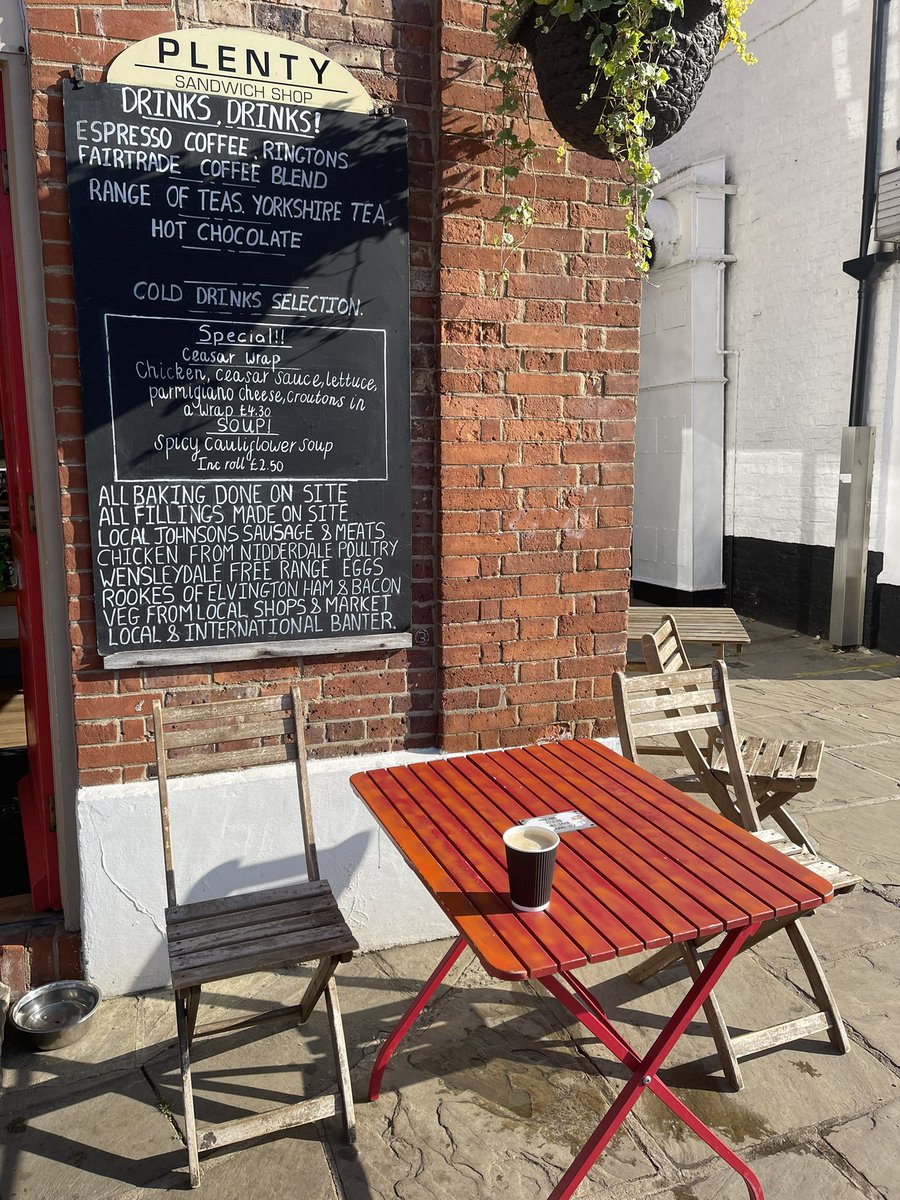 PLENTY
SANDWICH SHOP
DRINKS, DRINKS!
ESPRESSO COFFEE, RINGTONS
FAIRTRADE COFFEE BLEND
RANGE OF TEAS. YORKSHIRE TEA.
HOT CHOCOLATE
COLD DRINKS SELECTION.
Special!!
Ceasar wrap
Chicken, ceasar sauce, lettuce,
parmigiano cheese, croutons in
a wrap £4.30
SOUP!
Spicy Cauliflower soup
Inc roll £2.50
ALL BAKING DONE ON SITE
ALL FILLINGS MADE ON SITE
LOCAL JOHNSONS SAUSAGE & MEATS
CHICKEN FROM NIDDERDALE POULTRY
WENSLEYDALE FREE RANGE EGGS
ROOKES OF ELVINGTON HAM & BACON
VEG FROM LOCAL SHOPS & MARKET
LOCAL & INTERNATIONAL BANTER.